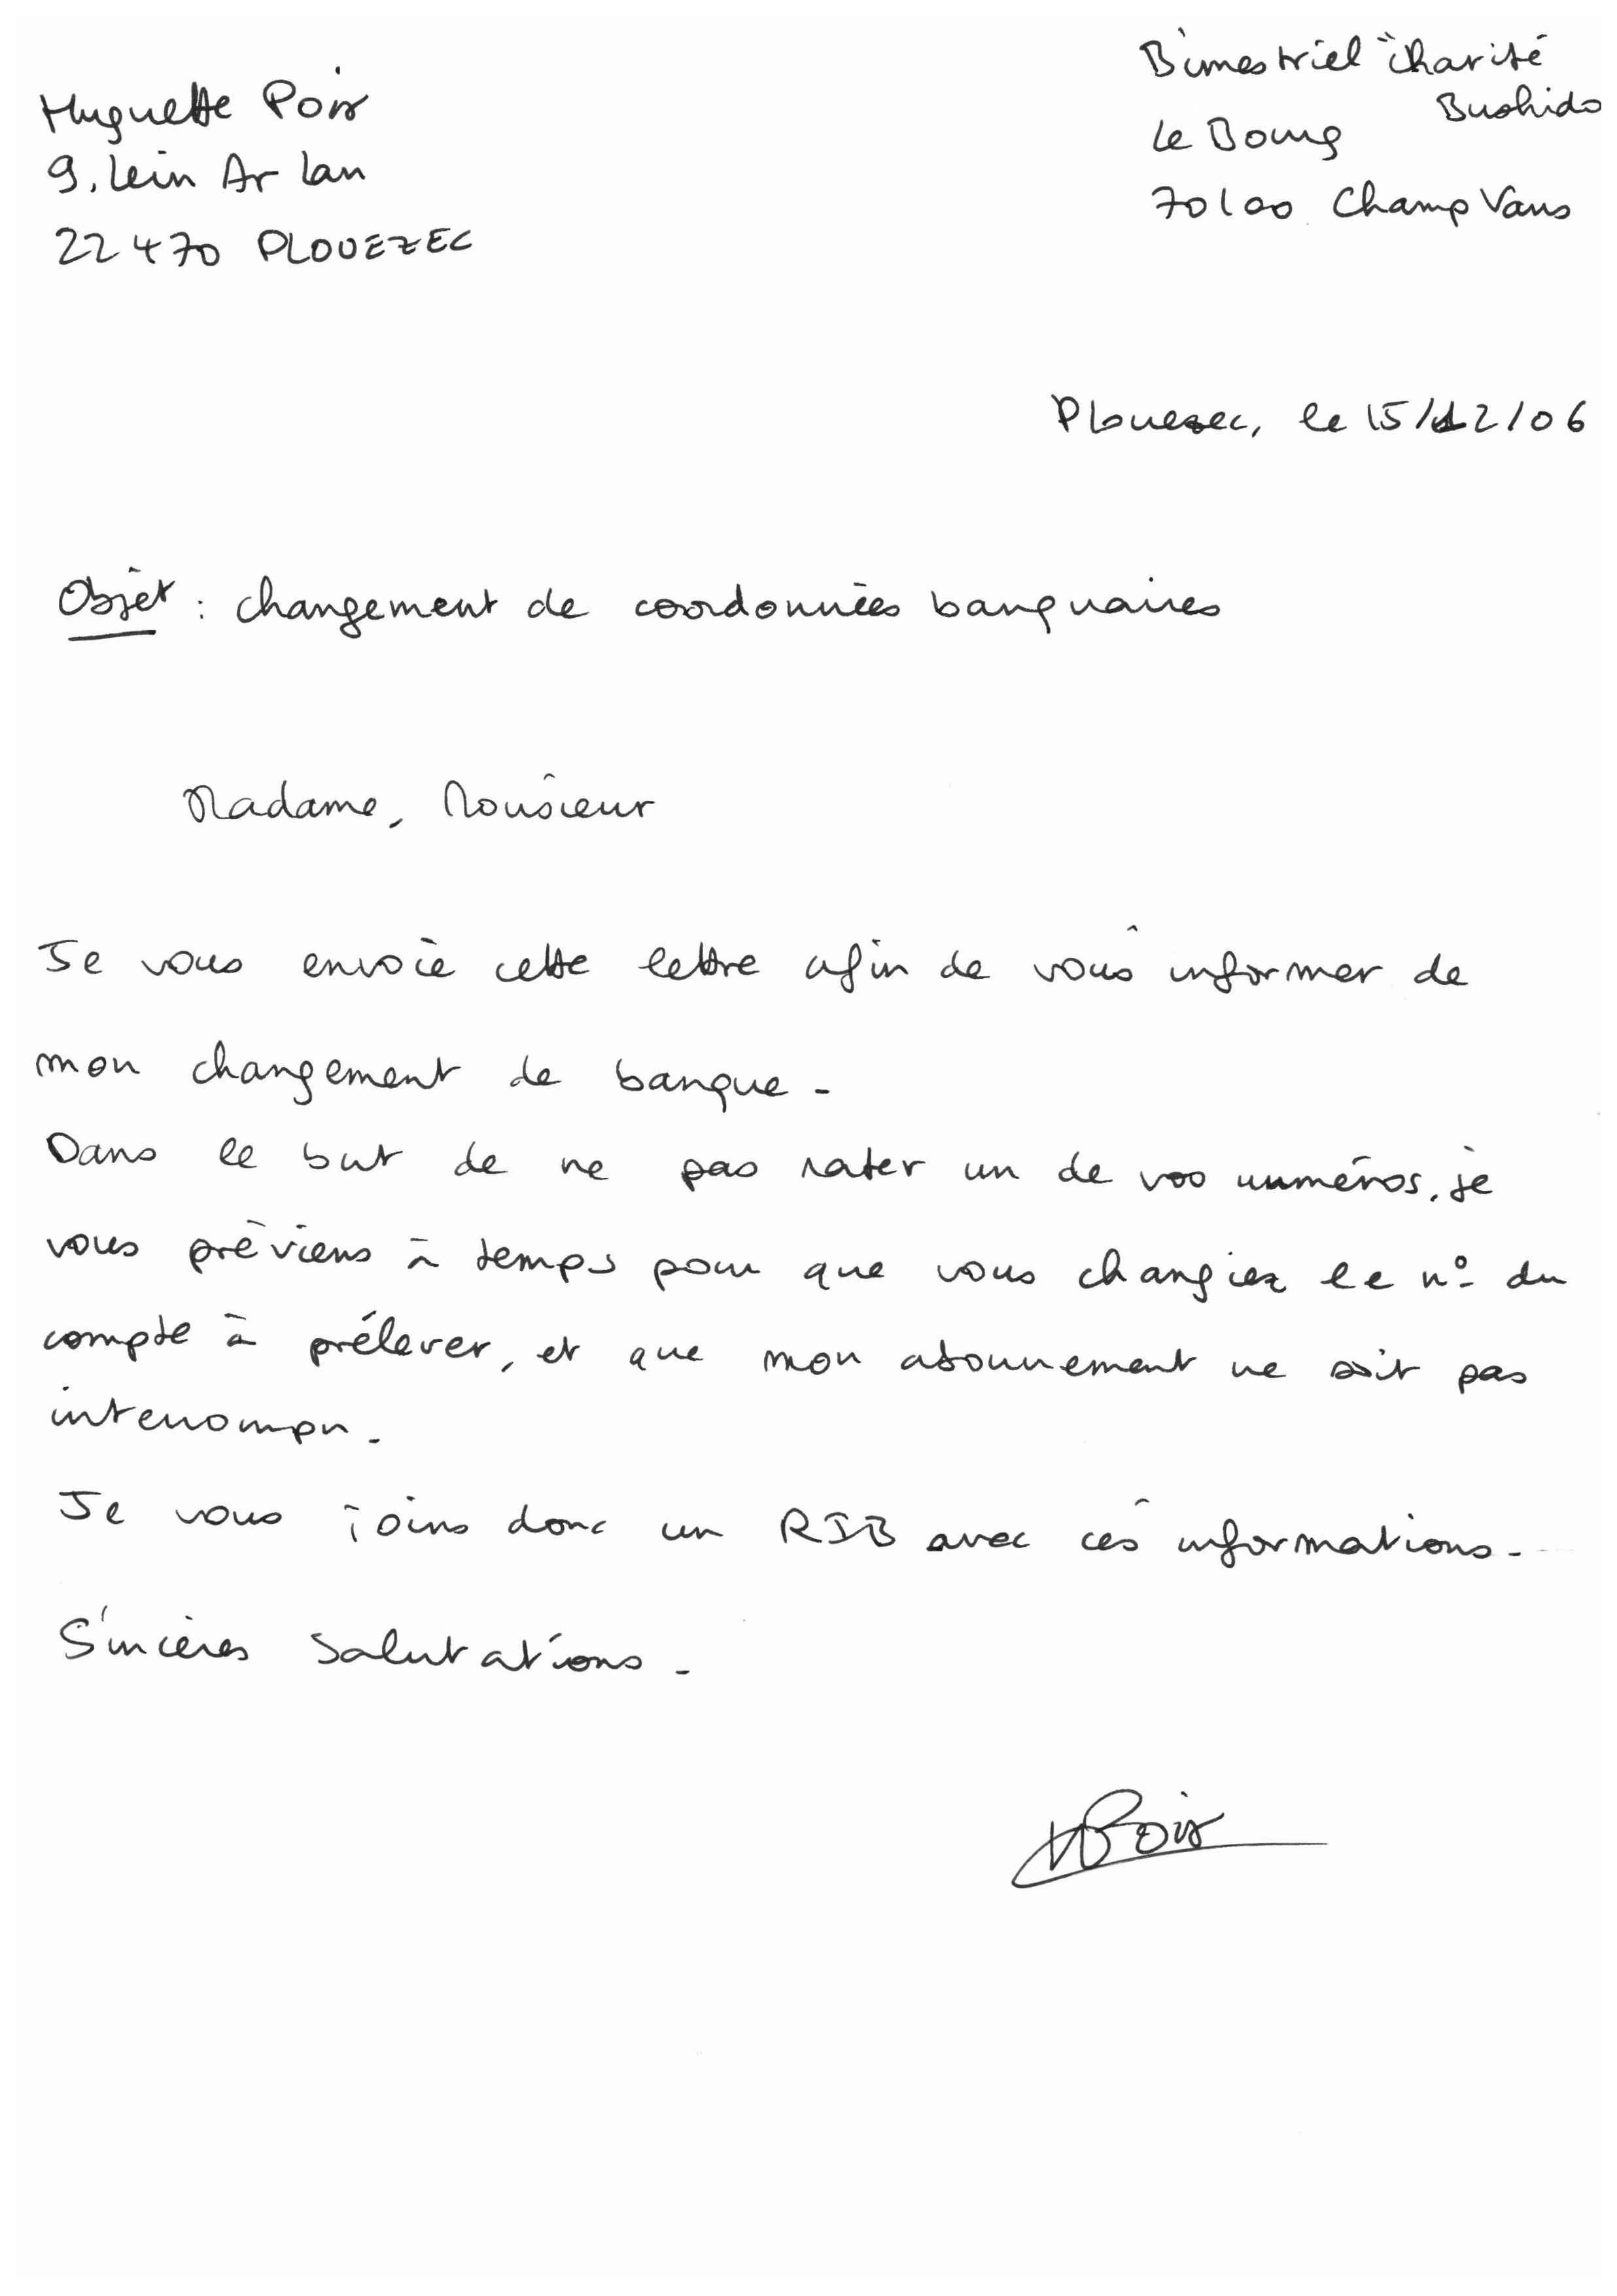 Huguette Poix
9, Lein Ar Lan
22470 PLOUEZEC
Bimestriel "Charité
Bushido
Le Bourg
70100 Champ Vans
Plouezec, le 15/12/06
Objet : changement de coordonnées banquaires
Madame, Monsieur
Je vous envoie cette lettre afin de vous informer de
mon changement de banque.
Dans le but de ne pas rater un de vos numéros, je
vous préviens à temps pour que vous changiez le n° du
compte à prélever, et que mon abonnement ne soit pas
interrompu.
Je vous joins donc un RIB avec ces informations.
Sincères Salutations.
HPoix